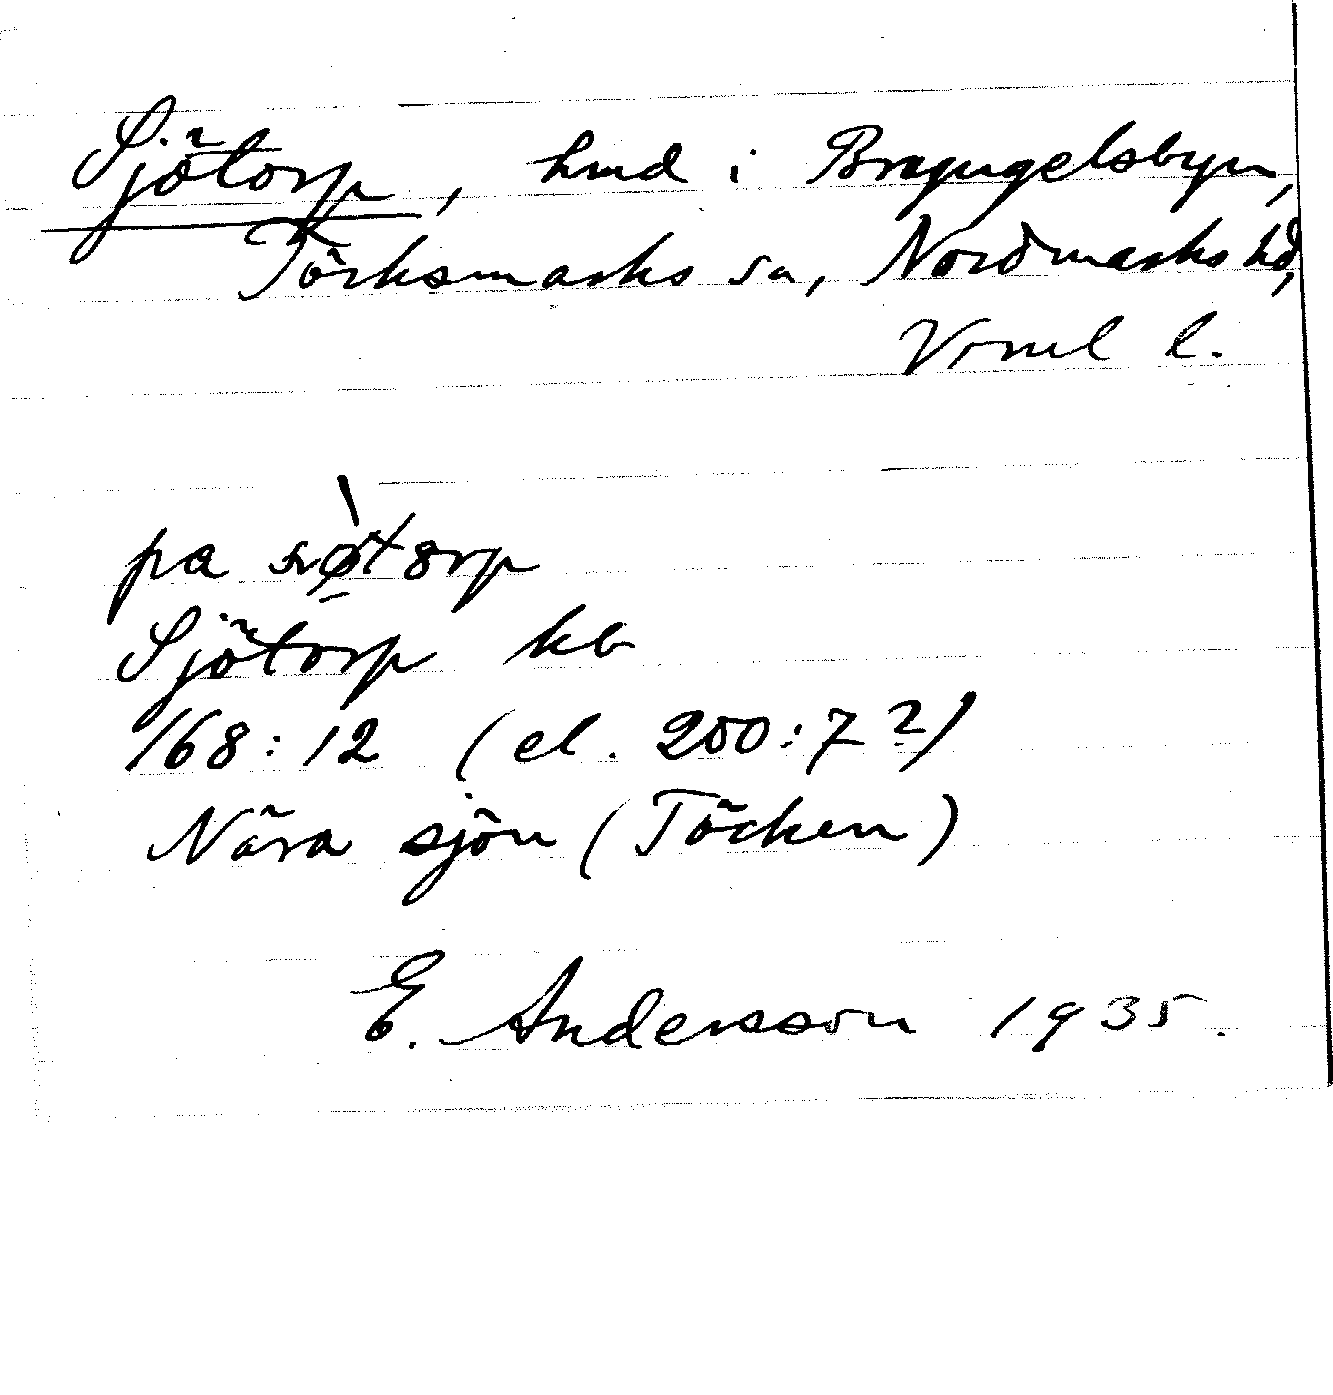 Sjötorp, hmd i Bragugelsbyn,
Törksmarks sn, Nordmarks hd,
Vrml l.
pa søtorp
Sjötorp kb
168:12 (el. 200:7?)
Nära sjön (Töcken)
E. Andersson 1935.